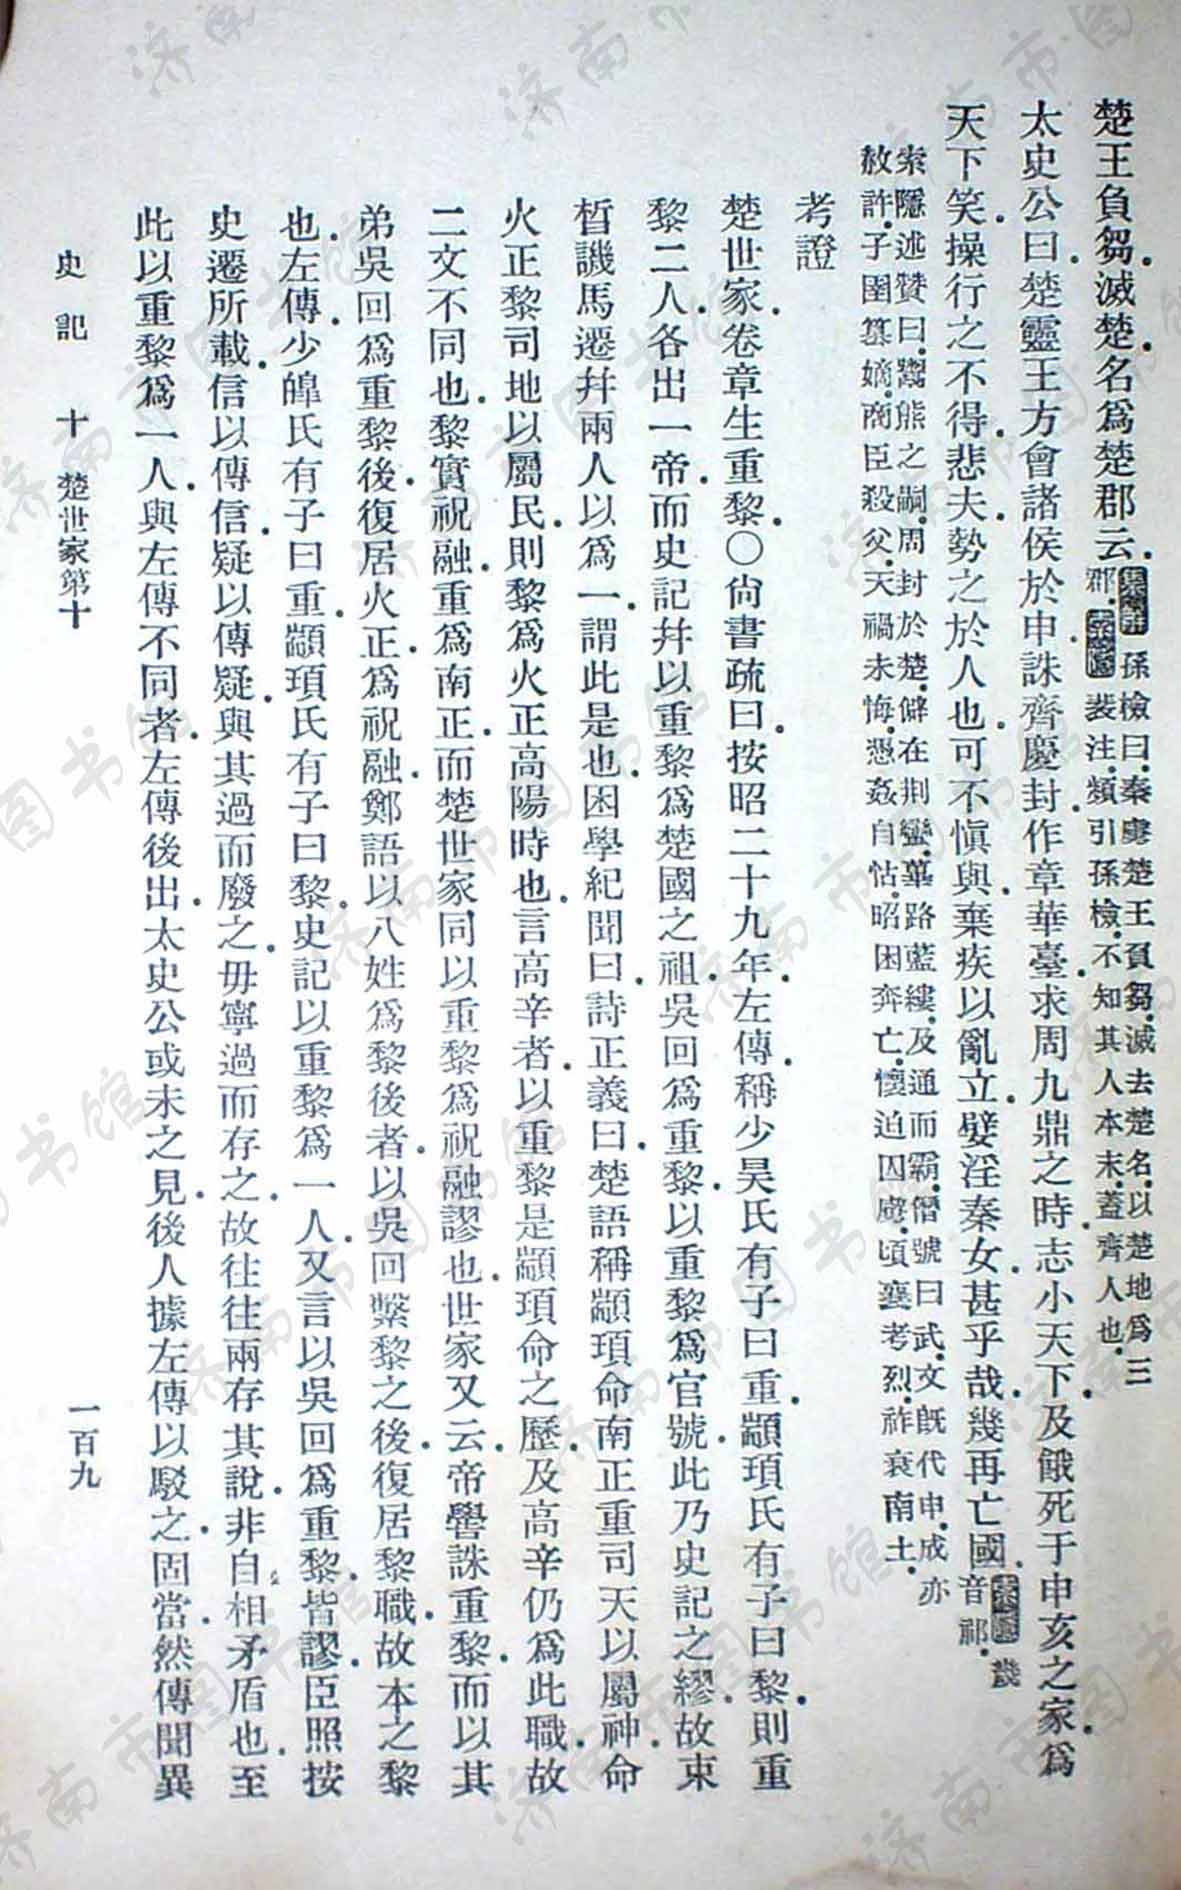 楚王負芻滅楚名爲楚郡云集解孫檢曰秦虜楚王負芻滅去楚名以楚地爲三郡索隱裴注頻引孫檢不知其人本末蓋齊人也
太史公曰楚靈王方會諸侯於申誅齊慶封作章華臺求周九鼎之時志小天下及餓死于申亥之家爲
天下笑操行之不得悲夫勢之於人也可不愼與棄疾以亂立嬖淫秦女甚乎哉幾再亡國索隱音祁
索隱述贊曰鬻熊之嗣周封於楚僻在荆蠻蓽路藍縷及通而霸僭號曰武文旣代申成亦
赦許子圉簒嫡商臣殺父天禍未悔憑姦自怙昭困奔亡懷迫囚虜頃襄考烈祚衰南土
考證
楚世家卷章生重黎〇尙書疏曰按昭二十九年左傳稱少昊氏有子曰重顓頊氏有子曰黎則重
黎二人各出一帝而史記幷以重黎爲楚國之祖吳回爲重黎以重黎爲官號此乃史記之繆故束
皙譏馬遷幷兩人以爲一謂此是也困學紀聞曰詩正義曰楚語稱顓頊命南正重司天以屬神命
火正黎司地以屬民則黎爲火正高陽時也言高辛者以重黎是顓頊命之歷及高辛仍爲此職故
二文不同也黎實祝融重爲南正而楚世家同以重黎爲祝融謬也世家又云帝嚳誅重黎而以其
弟吳回爲重黎後復居火正爲祝融鄭語以八姓爲黎後者以吳回繫黎之後復居黎職故本之黎
也左傳少皥氏有子曰重顓頊氏有子曰黎史記以重黎爲一人又言以吳回爲重黎皆謬臣照按
史遷所載信以傳信疑以傳疑與其過而廢之毋寧過而存之故往往兩存其說非自相矛盾也至
此以重黎爲一人與左傳不同者左傳後出太史公或未之見後人據左傳以駁之固當然傳聞異
史記 十 楚世家第十 一百九